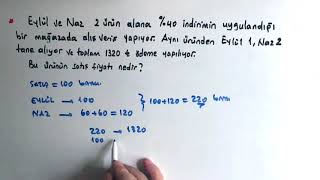 Eylül ve Naz 2 ürün alana %40 indirimin uygulandığı
bir mağazada alışveriş yapıyor. Aynı üründen Eylül 1, Naz 2
tane alıyor ve toplam 1320 ₺ ödeme yapılıyor.
Bu ürünün satış fiyatı nedir?
Satış = 100 birim
EYLÜL → 100
NAZ → 60+60 = 120
100+120 = 220 birim
220 → 1320
100